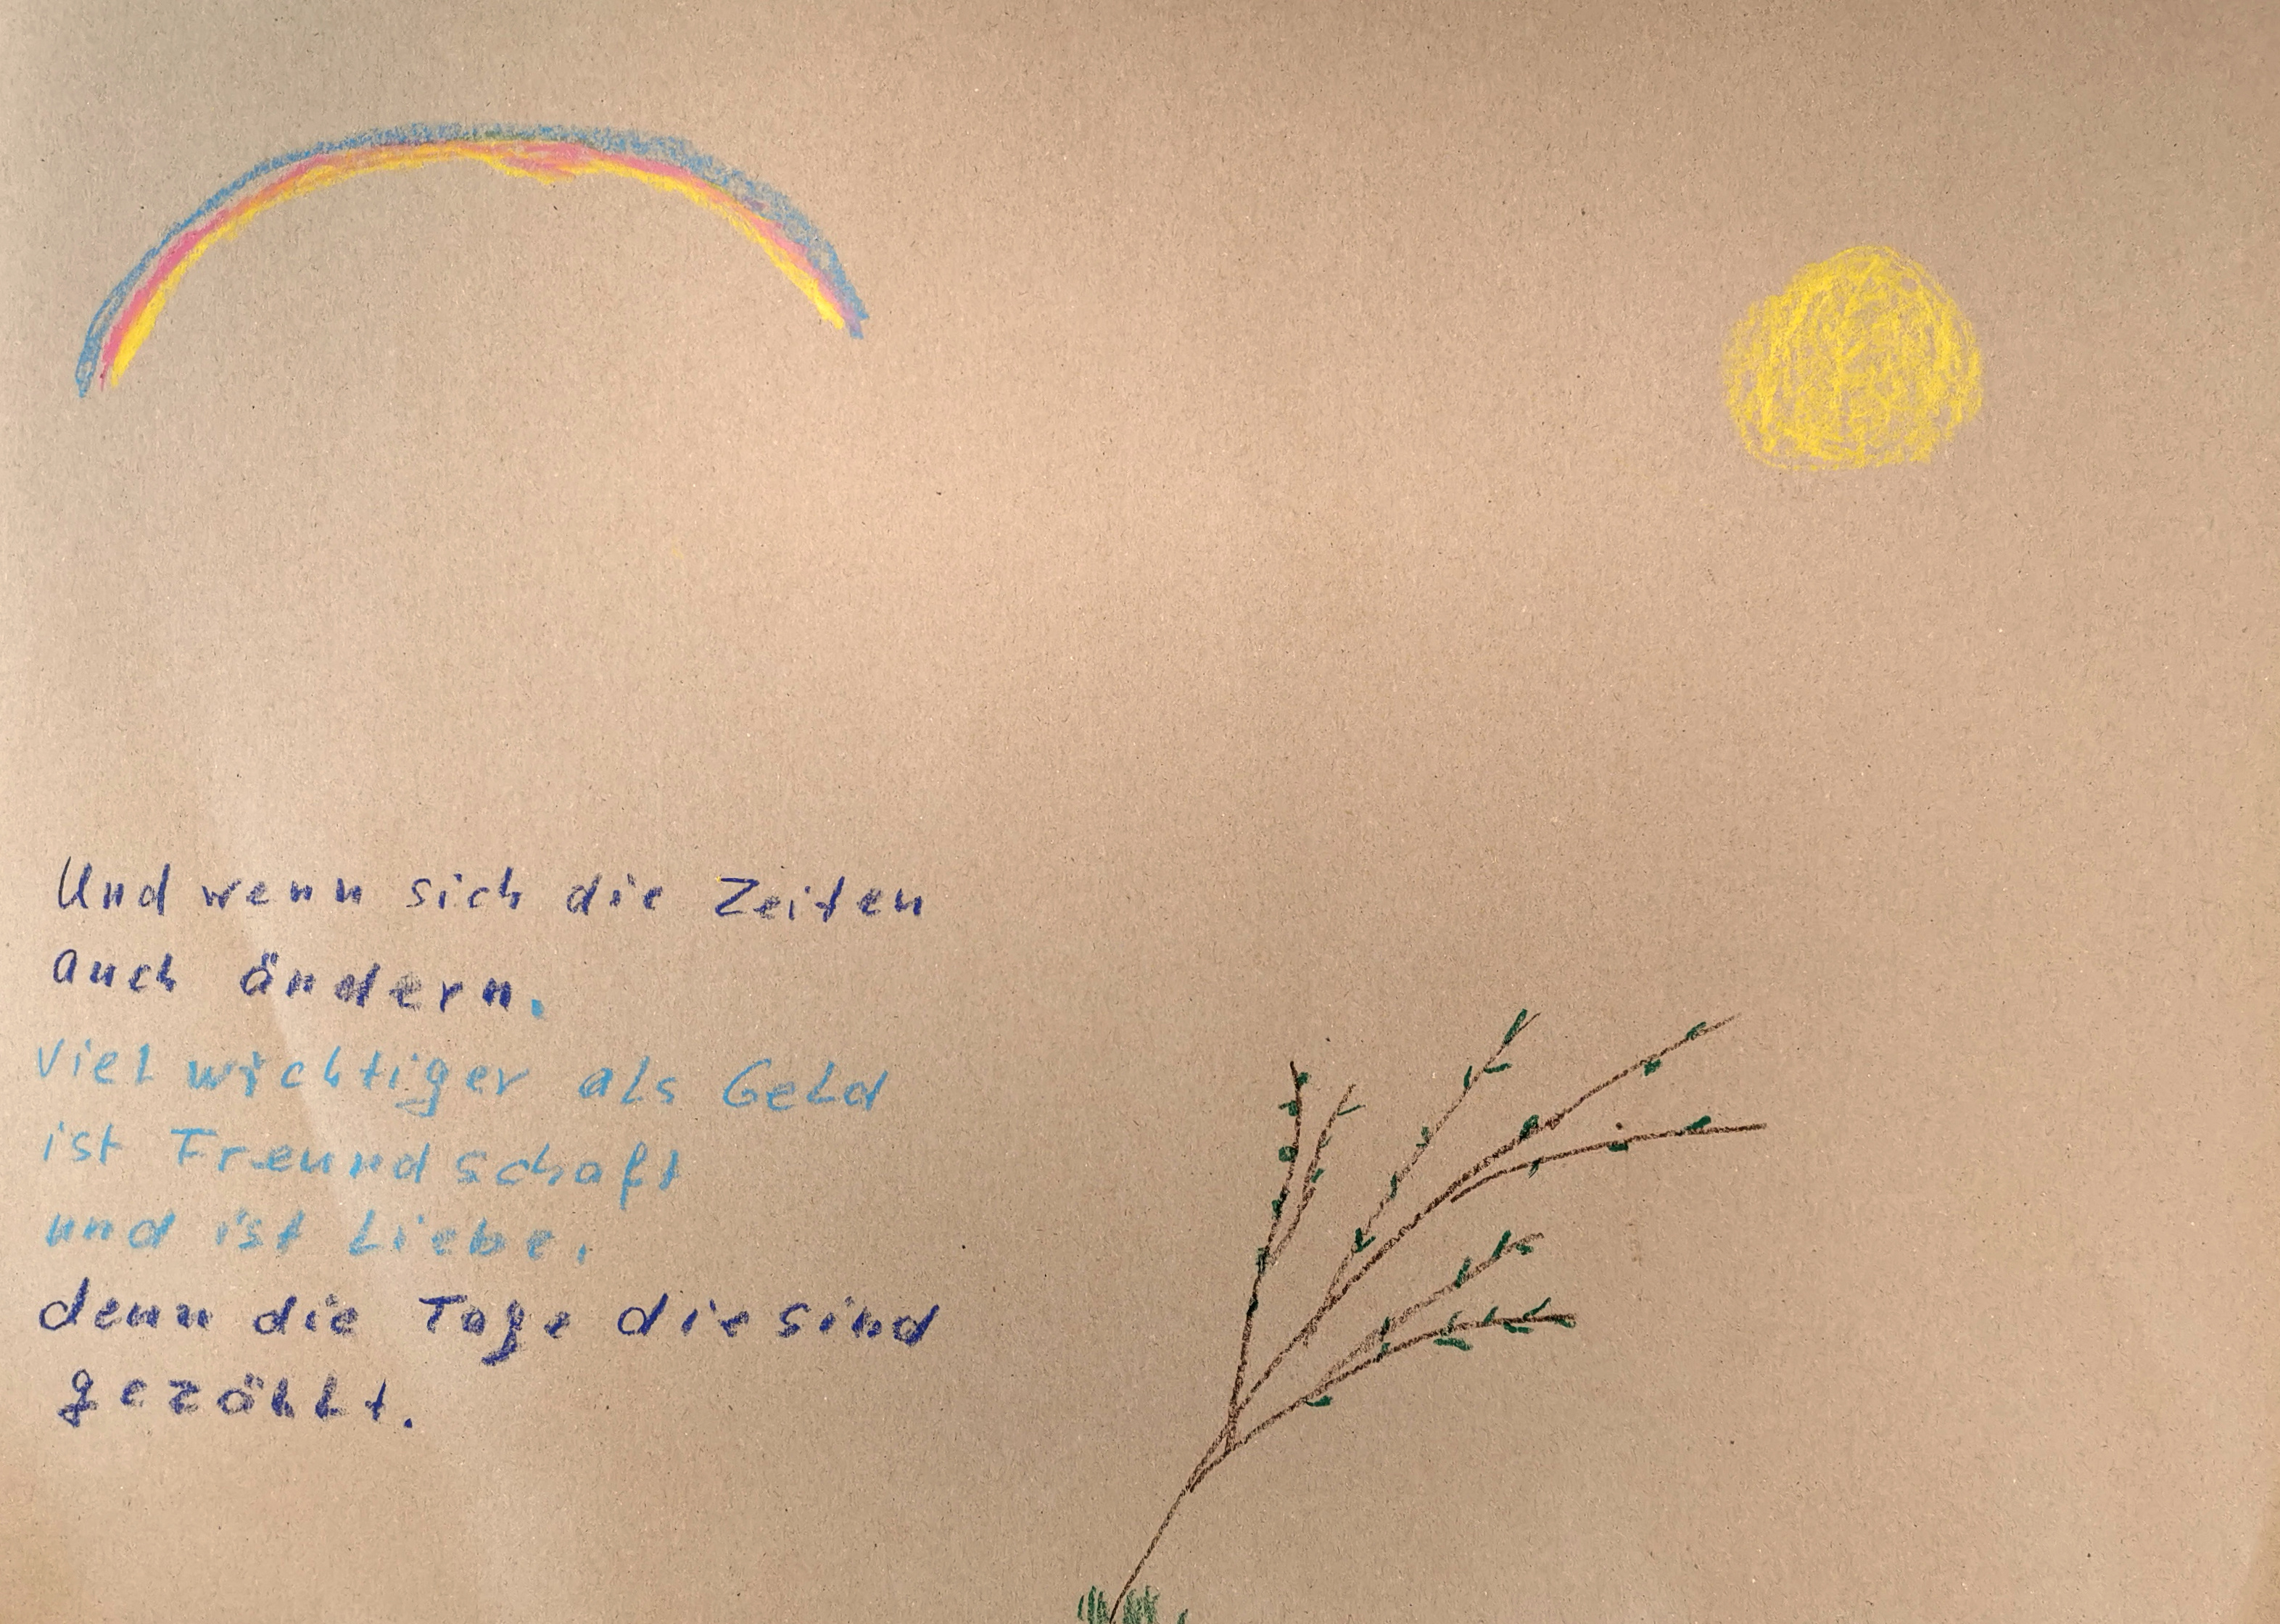 Und wenn sich die Zeiten
auch ändern.
Viel wichtiger als Geld
ist Freundschaft
und ist Liebe.
denn die Tage die sind
gezählt.